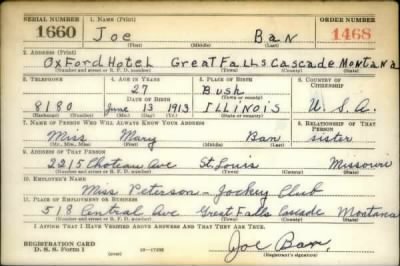 SERIAL NUMBER 1. NAME (Print) ORDER NUMBER
1660 Joe Ban 1468
(First) (Middle) (Last)
2. ADDRESS (Print)
Oxford Hotel Great Falls Cascade Montana
(Number and street or R. F. D. number) (Town) (County) (State)
3. TELEPHONE 4. AGE IN YEARS 5. PLACE OF BIRTH 6. COUNTRY OF CITIZENSHIP
27 Bush
DATE OF BIRTH (Town or county)
8180 June 13 1913 Illinois U.S.A.
(Exchange) (No.) (Mo.) (Day) (Yr.) (State or country)
7. NAME OF PERSON WHO WILL ALWAYS KNOW YOUR ADDRESS 8. RELATIONSHIP OF THAT PERSON
Miss Mary Ban sister
(Mr., Mrs., Miss) (First) (Middle) (Last)
9. ADDRESS OF THAT PERSON
2215 Choteau Ave St. Louis Missouri
(Number and street or R. F. D. number) (Town) (County) (State)
10. EMPLOYER'S NAME
Miss Peterson - Jockey Club
11. PLACE OF EMPLOYMENT OR BUSINESS
518 Central Ave Great Falls Cascade Montana
(Number and street or R. F. D. number) (Town) (County) (State)
I AFFIRM THAT I HAVE VERIFIED ABOVE ANSWERS AND THAT THEY ARE TRUE.
REGISTRATION CARD
D. S. S. Form 1
Joe Ban
(Registrant's signature)